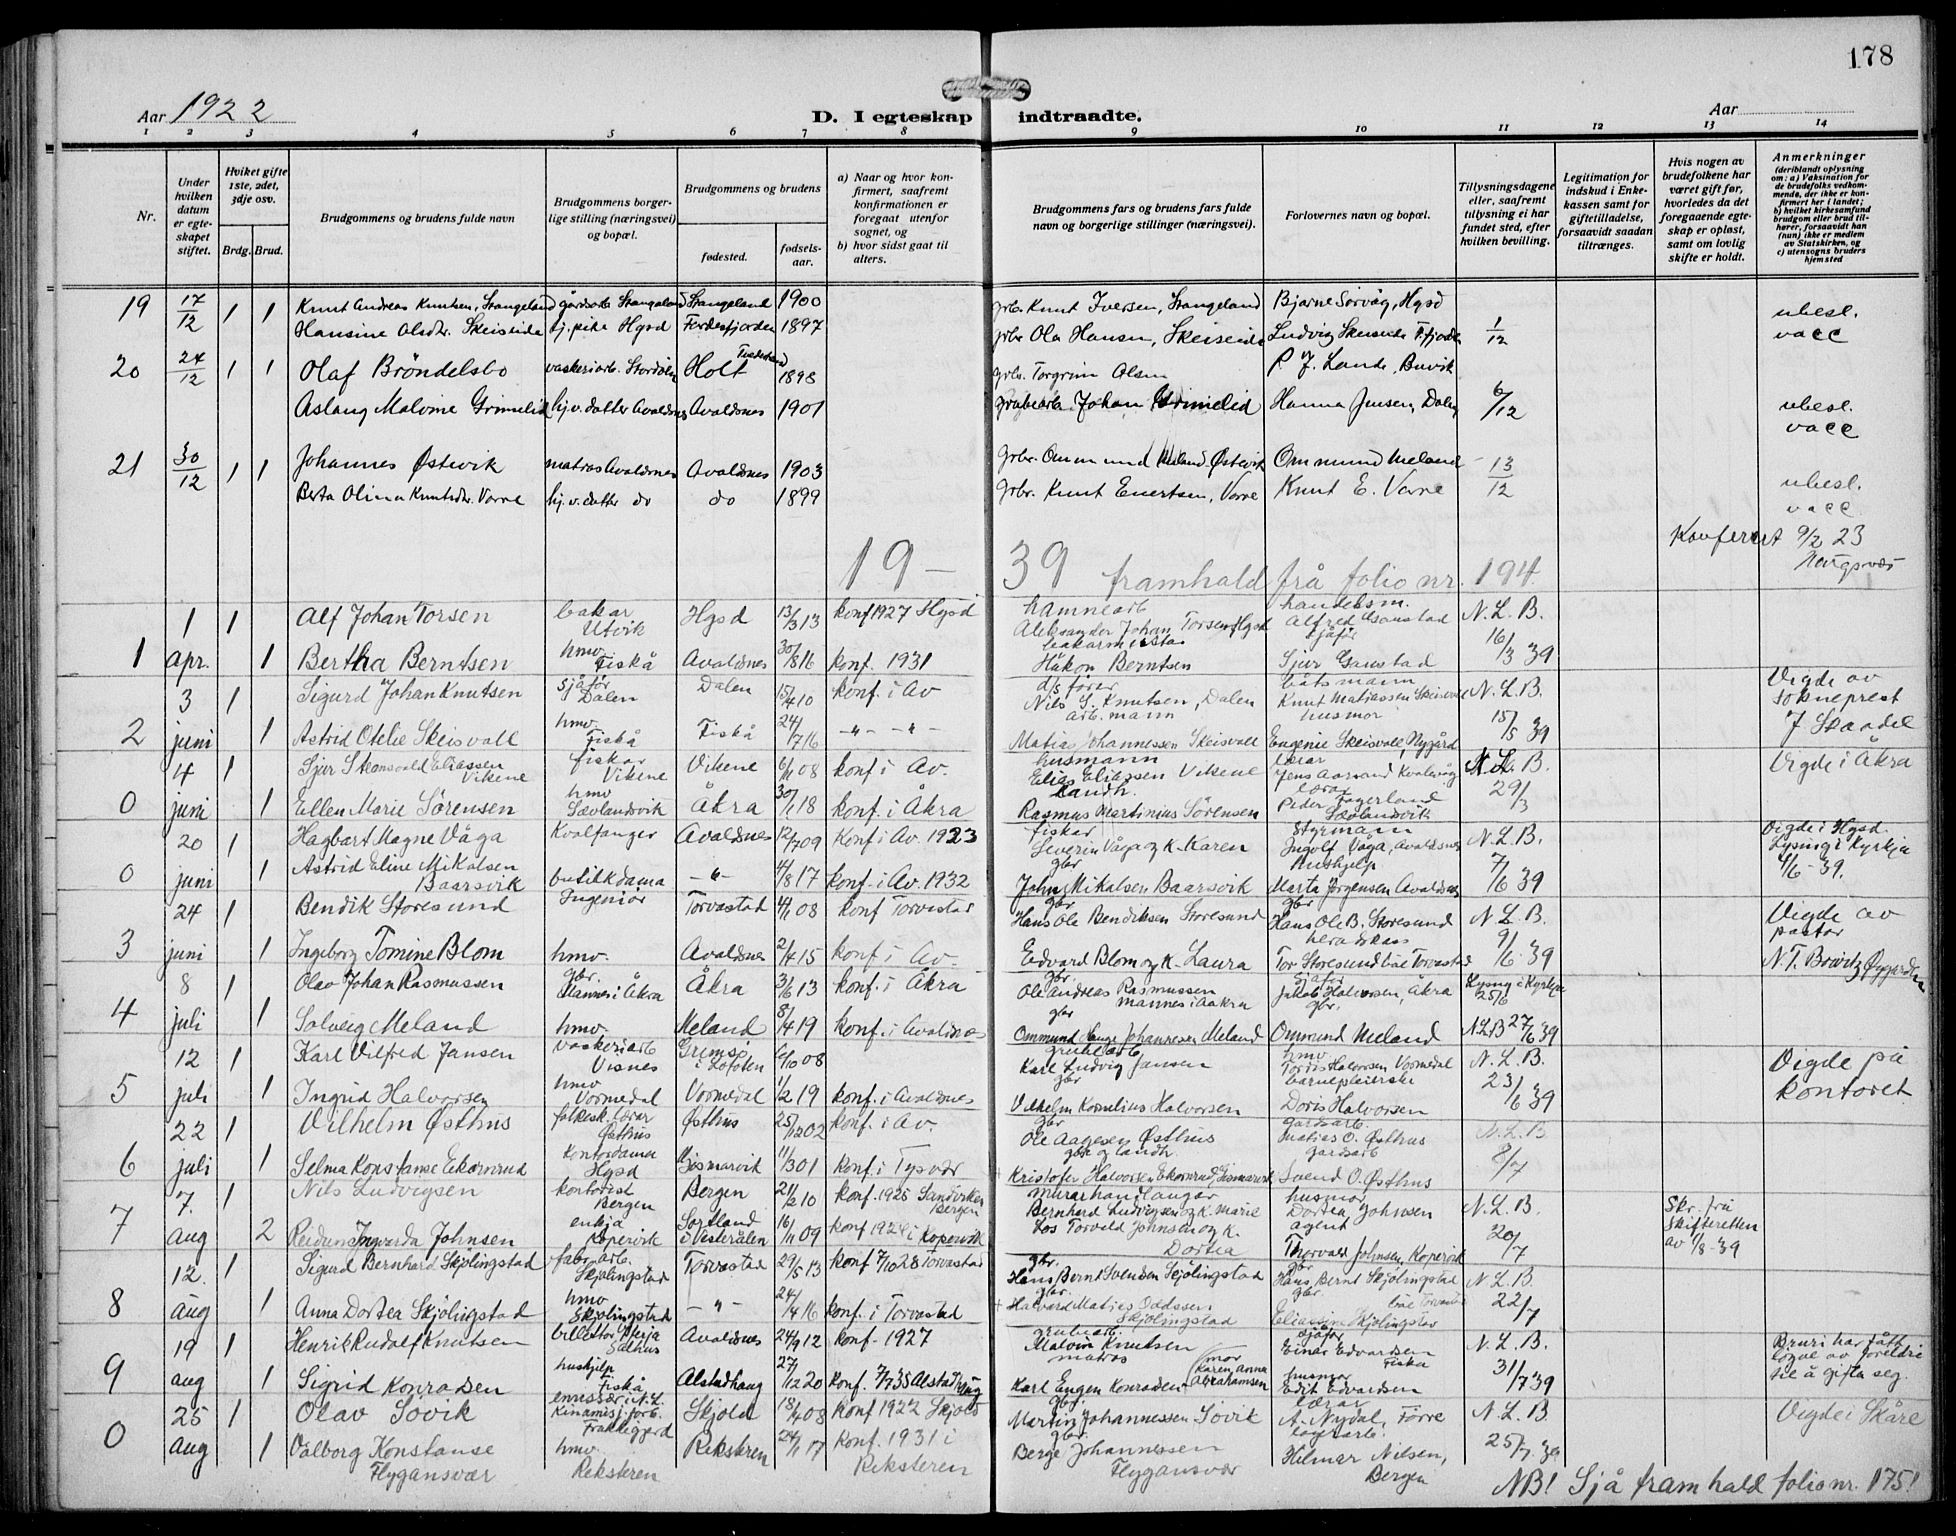 178
Aar 1922
D. I egteskap indtraadte.
Aar
1 2 3 4 5 6 7 8 9 10 11 12 13 14
Nr.
Under hvilken datum er egteskapet stiftet.
Hvilket gifte 1ste, 2det, 3dje osv.
Brdg. Brud.
Brudgommens og brudens fulde navn
Brudgommens borgerlige stilling (næringsvei) og bopæl.
Brudgommens og brudens
fødested.
fødselsaar.
a) Naar og hvor konfirmert, saafremt konfirmationen er foregaat utenfor sognet, og
b) hvor sidst gaat til alters.
Brudgommens fars og brudens fars fulde navn og borgerlige stillinger (næringsvei).
Forlovernes navn og bopæl.
Tillysningsdagene eller, saafremt tillysning ei har fundet sted, efter hvilken bevilling.
Legitimation for indskud i Enkekassen samt for giftetilladelse, forsaavidt saadan tiltrænges.
Hvis nogen av brudefolkene har været gift før, hvorledes da det foregaaende egteskap er opløst, samt om lovlig skifte er holdt.
Anmerkninger
19 17/12 1 1 Knut Andreas Knutsen, Stangeland gårdsarb. Stangeland Stangeland 1900 grbr. Knut Iversen, Stangeland Bjarne Sørvåg, Hgsd ubesl.
Hansine Olsdtr. Skeiseide tj.pike Hgsd Førdesfjorden 1897 grbr. Ola Hansen, Skeiseide Ludvig Skeiseide F.fjorden 1/12 vacc
20 24/12 1 1 Olaf Bröndelsbo vaskeriarb. Holt 1898 grbr. Torgrim Olsen P. J. Lande, Buvik
Aslaug Malvine Grimelid hj.v. datter Avaldsnes Avaldsnes 1901 grubearb. Johan Grimelid Hanna Jensen, Dalen 6/12 ubesl. vacc
21 30/12 1 1 Johannes Østevik matros Avaldsnes Avaldsnes 1903 Grbr. Ommund Meland Østevik Ommund Meland 13/12
Berta Olina Knutsdtr. Vorre hj.v. datter do do 1899 grbr. Knut Evertsen, Vorre Knut E. Vorre ubesl. vacc
Konferert 9/2 23
19 - 39 framhald frå folio nr. 194
1 1 Alf Johan Torsen bakar Utvik Hgsd 13/3 13 konf 1927 Hgsd hamnearb Aleksander Johan Torsen, Hgsd handelsm. Alfred Gaustad N. L. B.
1 apr. 1 Bertha Berntsen hmv. Fiskå Avaldsnes 30/8 16 konf. 1931 Håkon Berntsen sjåfør Sjur Gaustad 16/3 39
3 1 Sigurd Johan Knutsen sjåfør Dalen Dalen 15/4 10 konf. i Av d/s fører Nils S. Knutsen, Dalen båtsmann Knut Matiassen Skeisvoll N. L. B. Vigde av sokneprest
2 juni 1 Astrid Otelie Skeisvoll hmv. Fiskå Fiskå 24/7 16 - " - - " - arb. mann Matias Johannessen Skeisvoll husmor Eugenie Skeisvoll, Nygård 15/5 39 J Skadel
4 1 Sjur Stensvald Eliassen Vikene fiskar Vikene Vikene 6/11 08 konf i Av. husmann Elias Eliassen Vikene lærar N. L. B. Vigde i Åkra
0 juni 1 Ellen Marie Sørensen hmv Sævlandsvik Åkra 30/1 18 konf. i Åkra handh. Rasmus Martinius Sörensen lærar Peder Fagerland Sævlandsvik 29/3
20 1 Hagbart Magne Våga Kvalfanger Avaldsnes 12/7 09 Konf i Av. 1923 fiskar Severin Våga og k. Karen Styrmann Ingolf Våga, Avaldsnes N. L. B. Vigde i Hgsd. Lysing i Kyrkja
0 juni 1 Astrid Eline Mikalsen Baarsvik butikkdama - " - 4/8 17 konf. i Av. 1932 gbr John Mikalsen Baarsvik Hushjelp Marta Jørgensen Avaldsnes 7/6 39 4/6-39.
24 1 Bendik Storesund Ingeniør Torvastad 4/1 08 konf Torvastad gbr Hans Ole Bendiksen Storesund gbr Hans Ole B. Storesund N. L. B. Vigde av pastor
3 juni 1 Ingeborg Tomine Blom hmv. Avaldsnes 2/4 15 konf i Av. Edvard Blom og k. Laura Tor Storesund båe Torvastad 9/6 39
8 1 Olav Johan Rasmussen gbr. Mannes i Åkra Åkra 3/6 13 konf. i Åkra gbr. Ole Andreas Rasmussen Mannes i Aakra sjåfør Jakob Halvorsen, Åkra Lysing i Kyrkja 25/6
4 juli 1 Solveig Meland hmv. Meland 8/4 19 konf. i Avaldsnes gbr Ommund Hauge Johannesen Meland gbr. Ommund Meland N.L.B 27/6 39
12 1 Karl Vilfred Jansen vaskeriarb Visnes i Lofoten 6/10 08 grubearb Karl Ludvig Jansen hmv Halvorsen Vormedal N. L. B. Vigde på
5 juli 1 Ingrid Halvorsen hmv Vormedal Vormedal 1/2 19 konf. i Avaldsnes gbr Vilhelm Kornelius Halvorsen barnepleierske Doris Halvorsen 23/6 39 kontoret
22 1 Vilhelm Østhus folkesk. lærar Østhus Østhus 25/12 02 konf. i Av. gbr Ole Aagesen Østhus gardsarb. Matias O. Østhus N. L. B
6 juli 1 Selma Konstanse Ekornrud kontordama Hgsd Gismarvik 11/3 01 konf. i Tysvær gbr og landh. Kristofer Halvorsen Ekornrud, Gismarvik gardsarb Svend O. Østhus 8/7
7. 1 Nils Ludvigsen kontorist Bergen Bergen 21/2 10 konf. 1925 Sandviken Bergen murarhandlangar Bernhard Ludvigsen og k. Marie husmor Dortea Johnsen N. L. B. Skr. frå
7 aug 2 Reidun Ingvarda Johnsen enkja Kopervik Sortland i Vesterålen 16/11 09 konf 1924 i Kopervik Los Torvald Johnsen og k. Dortea agent Thorvald Johnsen, Kopervik 20/7 Skifteretten av 1/8-39
12. 1 Sigurd Bernhard Skjölingstad fabr.arb. Skjölingstad Torvastad 29/5 13 konf 7/10 28 Torvastad gbr. Hans Bernt Svendsen Skjölingstad gbr Hans Bernt Skjölingstad N. L. B.
8 aug 1 Anna Dortea Skjölingstad hmv Skjölingstad - " - 24/4 16 konf. i Torvastad gbr. Halvard Matias Oddssen Skjölingstad gbr. båe Torvastad 22/7
19 1 Henrik Rudolf Knutsen Salhus Avaldsnes 24/9 12 konf. 1927 grubearb. Malvin Knutsen sjåfør Einar Edvardsen Fiskå N. L. B. Bruri har fått løyve av foreldre
9 aug 1 Sigrid Konradsen hushjelp Fiskå Alstadhaug 27/12 20 konf. 7/7 35 Alstadhaug matros Karl Eugen Konradsen (mor Karen Anna Abrahamsen husmor Edit Edvardsen 31/7 39 til å gifta seg.
25 1 Olav Sövik Kinamisj.forb. Frakkagjerd Skjold 18/4 08 konf 1922 Skjold gbr. Martin Johannessen Sövik lærar A. Nydal, Førre N. L. B Vigde i Skåre
0 aug 1 Valborg Konstanse Flygansvær hmv. Reksteren Reksteren 24/1 17 konf. 1931 i Reksteren gbr. Berge Johannessen Flygansvær Hilmar Nilsen, Bergen 25/7 39
NB! Sjå framhald folio nr. 175!